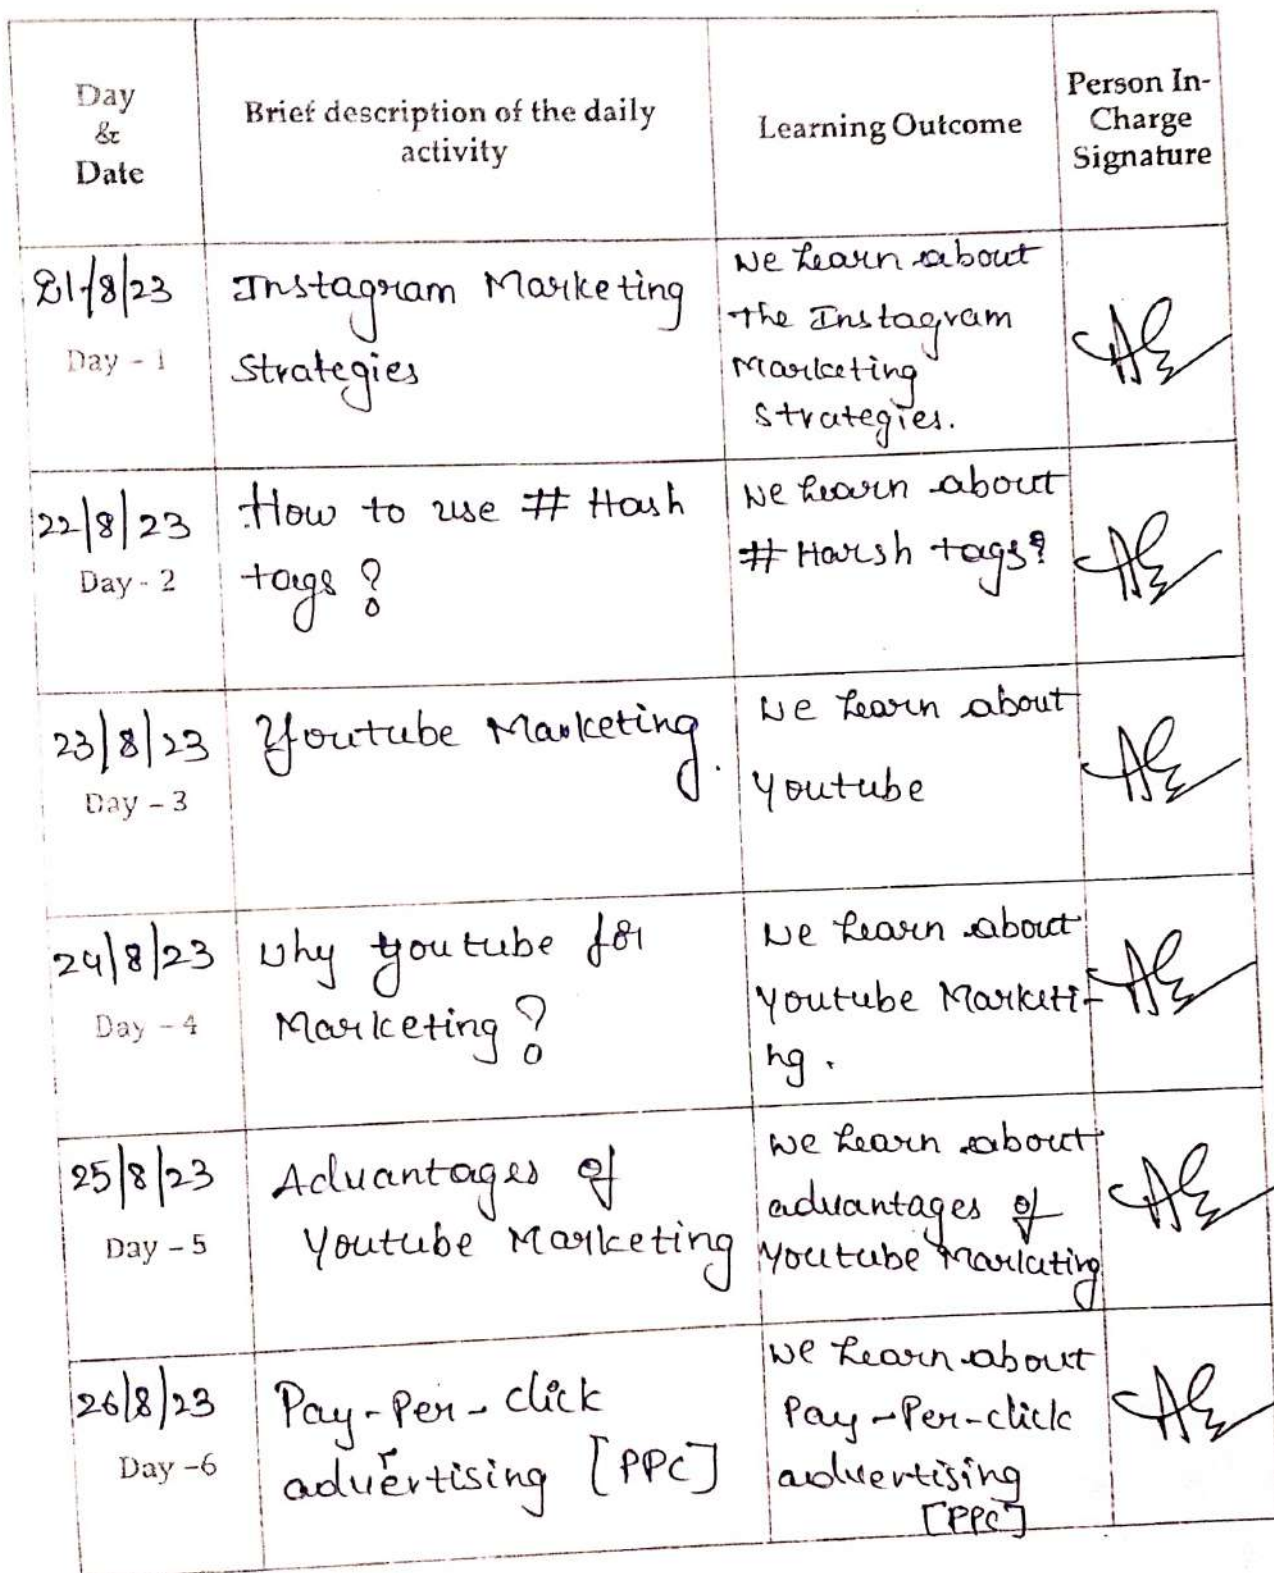 Day
&
Date
Brief description of the daily
activity
Learning Outcome
Person In-
Charge
Signature
21/8/23
Day - 1
Instagram Marketing
Strategies
We learn about
the Instagram
Marketing
Strategies.
22/8/23
Day - 2
How to use # Hash
tags?
We learn about
# Harsh tags?
23/8/23
Day - 3
Youtube Marketing.
We learn about
Youtube
24/8/23
Day - 4
Why youtube for
Marketing?
We learn about
Youtube Marketi-
ng.
25/8/23
Day - 5
Advantages of
Youtube Marketing
We learn about
advantages of
Youtube Marketing
26/8/23
Day -6
Pay-Per-click
advertising [PPC]
We learn about
Pay-Per-click
advertising
[PPC]